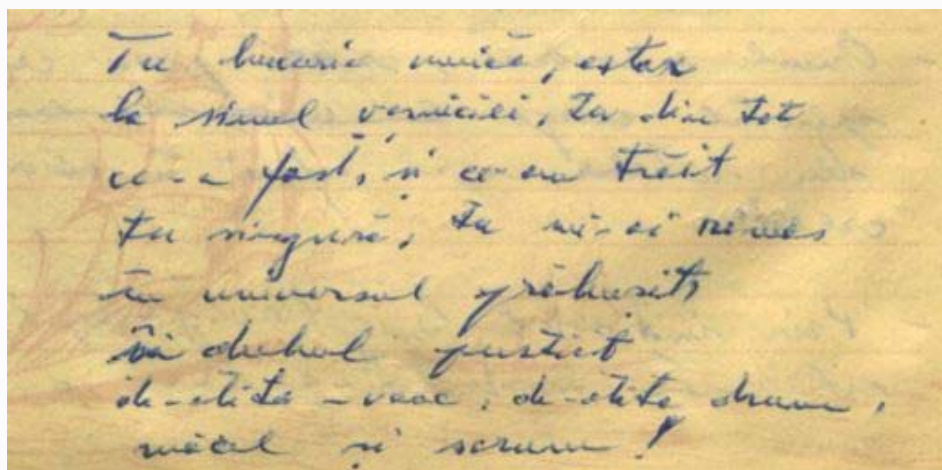 Tu bucurie mică, extaz
la sînul vernicii, tu din tot
ce-a fost, și ce-am trăit
tu singură, tu mi-ai rămas
în universul prăbușit,
în duhul pustiit
de-atîta veac, de-atîta drum,
măcel și scrum!